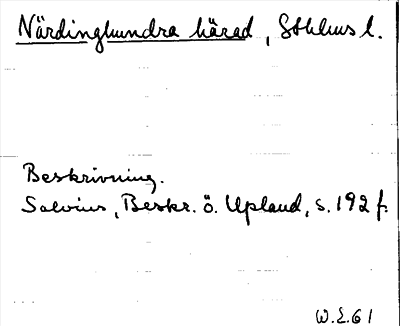 Närdinghundra härad, Sthlms l.
Beskrivning.
Salvius, Beskr. ö. Upland, s. 192 f.
W.E. 61